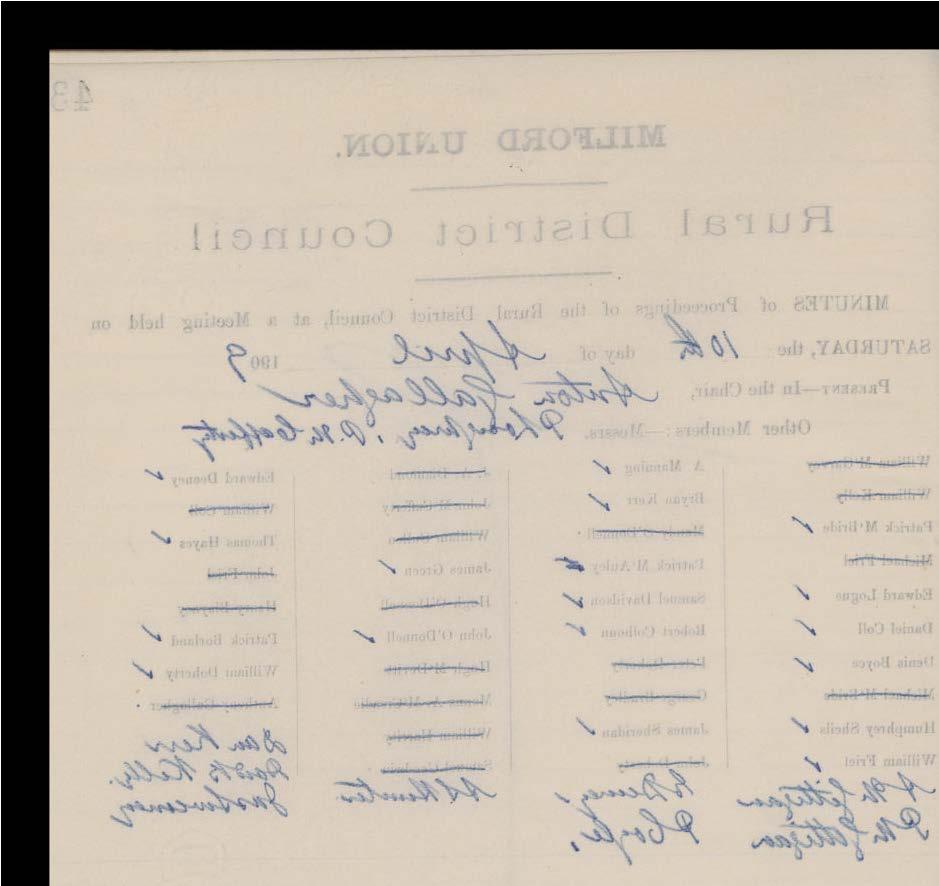 43
MILFORD UNION.
Rural District Council.
MINUTES of Proceedings of the Rural District Council, at a Meeting held on
SATURDAY, the 10th day of April 1909
PRESENT—In the Chair, Anton Gallagher
Other Members:—Messrs.
William M'Garvey
William Kelly
Patrick M'Bride
Michael Friel
Edward Logue
Daniel Coll
Denis Boyce
Michael M'Bride
Humphrey Sheils
William Friel
A M Gettigan
P M Gettigan
A Manning
Bryan Kerr
Manus O'Donnell
Patrick M'Auley
Samuel Davidson
Robert Colhoun
Peter Doherty
George Bradley
James Sheridan
P Coyle
J. A. Diamond
John M'Cafferty
William
James Green
Hugh O'Donnell
John O'Donnell
Hugh M'Devitt
William
Samuel
Hunter
Edward Deeney
William Coll
Thomas Hayes
John Friel
Patrick Borland
William Doherty
Anthony Gallagher
Dan Kerr
Kelly
Jas Sweeney